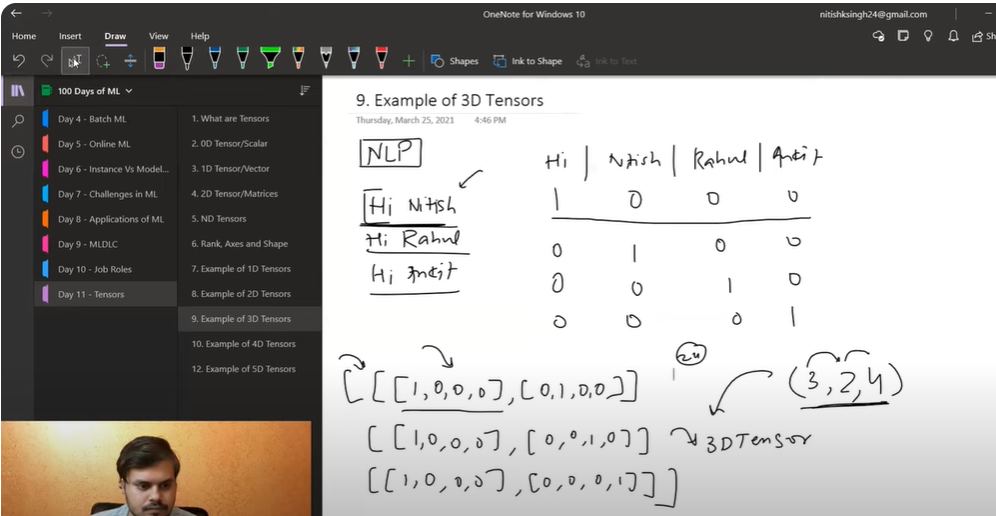 OneNote for Windows 10
nitishksingh24@gmail.com
Home Insert Draw View Help
Shapes Ink to Shape Ink to Text
100 Days of ML
Day 4 - Batch ML
Day 5 - Online ML
Day 6 - Instance Vs Model...
Day 7 - Challenges in ML
Day 8 - Applications of ML
Day 9 - MLDLC
Day 10 - Job Roles
Day 11 - Tensors
1. What are Tensors
2. 0D Tensor/Scalar
3. 1D Tensor/Vector
4. 2D Tensor/Matrices
5. ND Tensors
6. Rank, Axes and Shape
7. Example of 1D Tensors
8. Example of 2D Tensors
9. Example of 3D Tensors
10. Example of 4D Tensors
12. Example of 5D Tensors
9. Example of 3D Tensors
Thursday, March 25, 2021 4:46 PM
NLP
Hi Nitish
Hi Rahul
Hi Ankit
Hi | Nitish | Rahul | Ankit
1 0 0 0
0 1 0 0
0 0 1 0
0 0 0 1
[[[1,0,0,0],[0,1,0,0]]
[[1,0,0,0],[0,0,1,0]]
[[1,0,0,0],[0,0,0,1]]]
24
(3,2,4)
3D Tensor